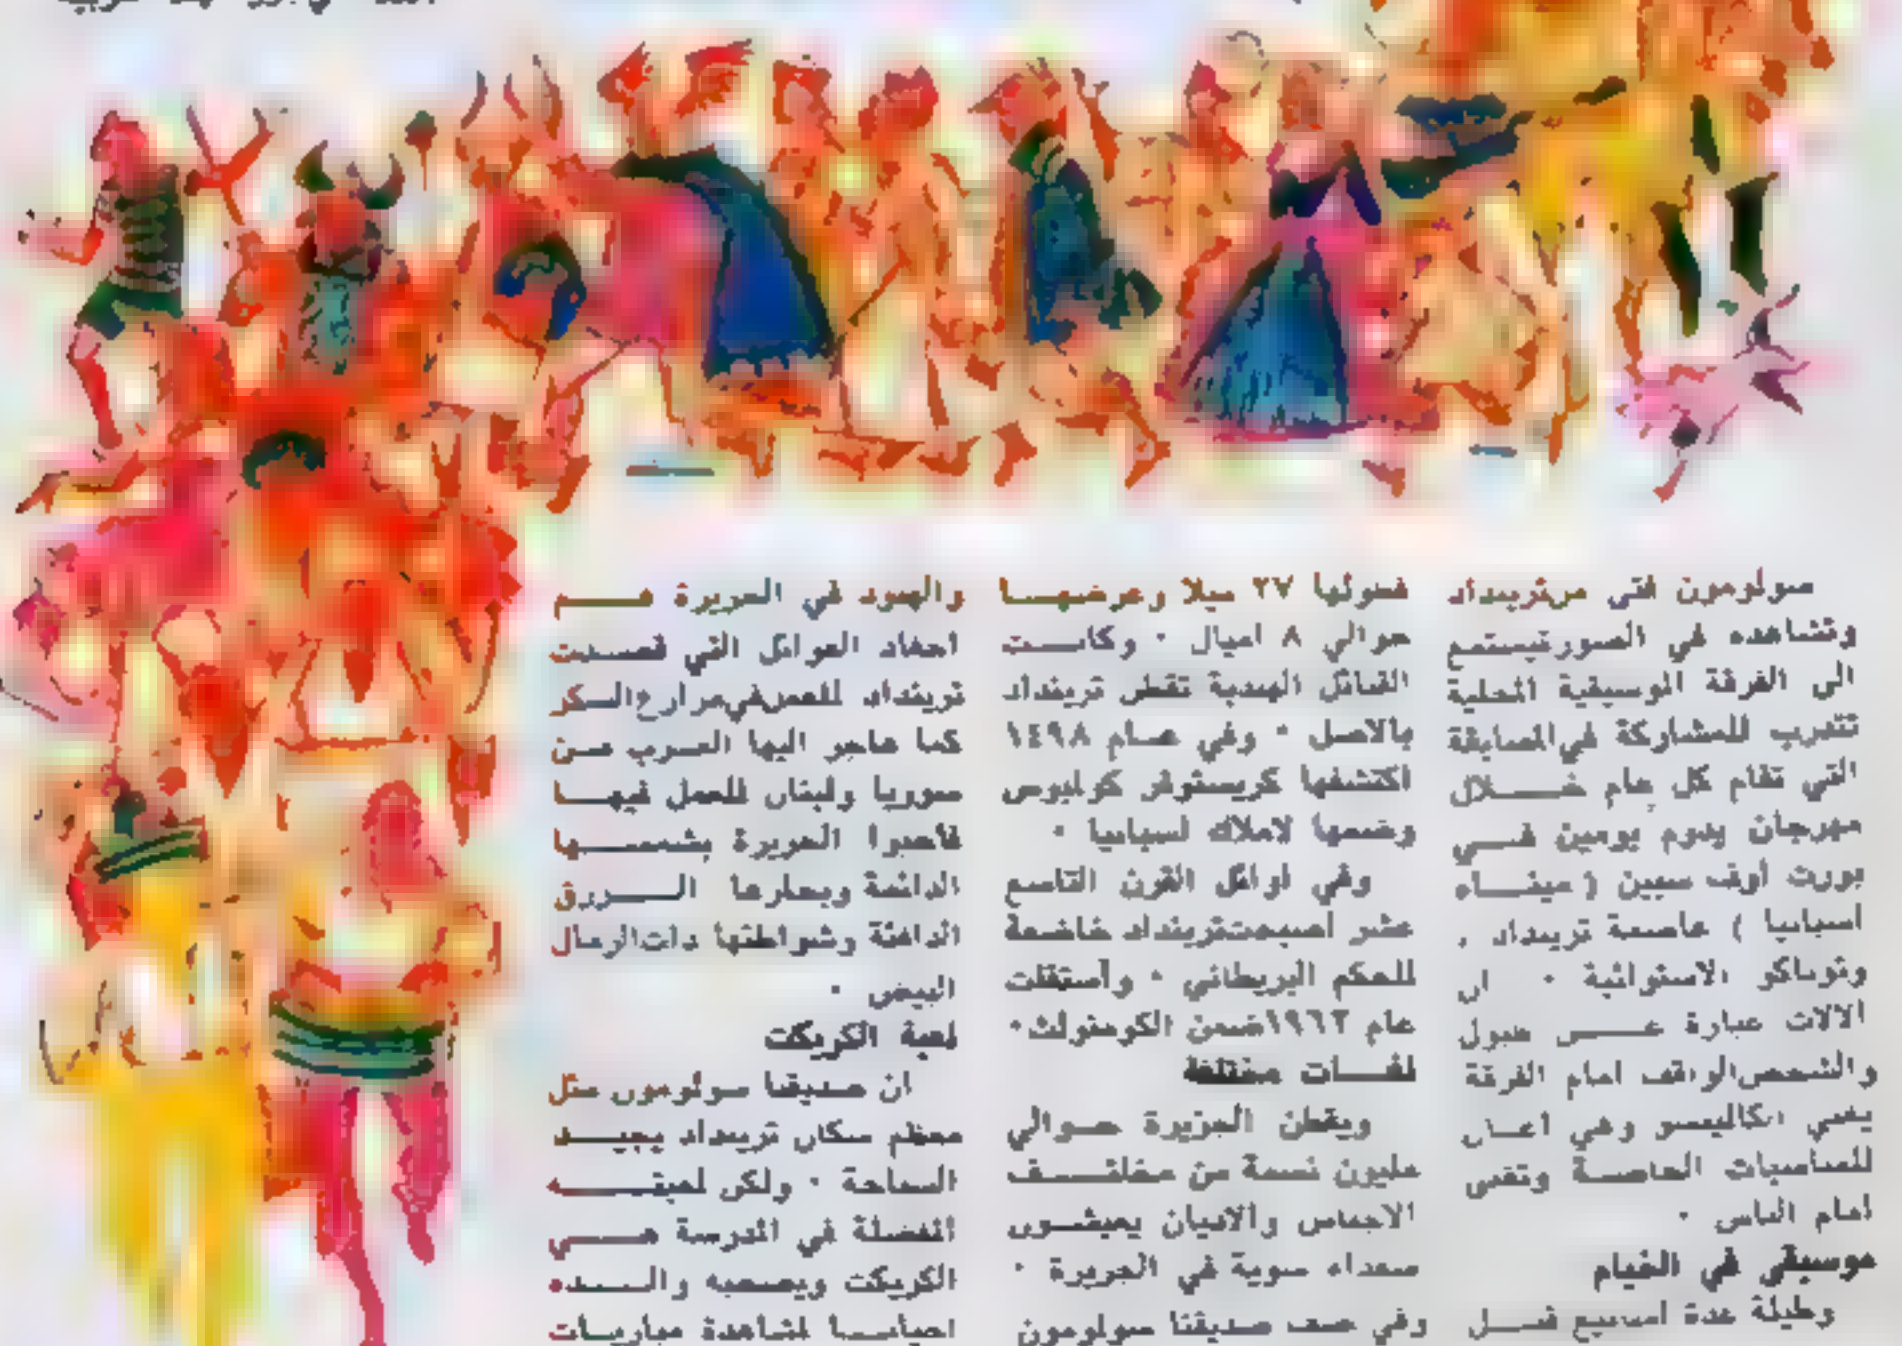 سولومون فتى من ترينداد
وتشاهده في الصور يستمع
الى الفرقة الموسيقية المحلية
تتدرب للمشاركة في المسابقة
التي تقام كل عام خـــلال
مهرجان يدوم يومين فـــي
بورت أوف سبين ( مينـــاء
اسبانيا ) عاصمة ترينداد .
وتوباكو الاستوائية . ان
الالات عبارة عـــن
والشخص الواقف امام الفرقة
يغني الكاليبسو وهي اغـان
للمناسبات الخاصـــة وتغنى
امام الناس .
موسيقى في الخيام
وطيلة عدة اسابيع قبـــل
فطولها ٢٧ ميلا وعرضهـــا
حوالي ٨ اميال . وكانـــت
القبائل الهندية تقطن ترينداد
بالاصل . وفي عـام ١٤٩٨
اكتشفها كريستوفر كولمبوس
وضمها لاملاك اسبانيا .
وفي اوائل القرن التاسع
عشر اصبحت ترينداد خاضعة
للحكم البريطاني . وأستقلت
عام ١٩٦٢ ضمن الكومنولث .
لغـــات مختلفة
ويقطن الجزيرة حـوالي
مليون نسمة من مختلـــف
الاجناس والاديان يعيشـون
سعداء سوية في الجزيرة .
وفي صف صديقنا سولومون
والهنود في الجزيرة هـــم
احفاد العوائل التي قصـدت
ترينداد للعمل في مزارع السكر
كما هاجر اليها العـرب من
سوريا ولبنان للعمل فيهـــا
فأحبوا الجزيرة بشمســـها
الدائمة وبحارها الـــزرق
الدافئة وشواطئها ذات الرمال
البيض .
لعبة الكريكت
ان صديقنا سولومون مثل
معظم سكان ترينداد يجيـــد
السباحة . ولكن لعبتـــه
المفضلة في المدرسة هـــي
الكريكت ويصحبه والـــده
احيانـــا لمشاهدة مباريـات